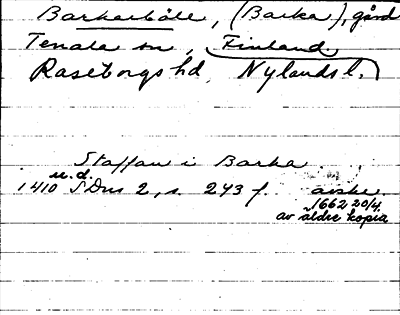 Barkarböle, (Barka), gård
Tenala sn, Finland.
Raseborgs hd, Nylands l.
Staffan i Barka.
u.d.
1410 SDns 2, s. 243 f. avskr.
1662 20/4
av äldre kopia